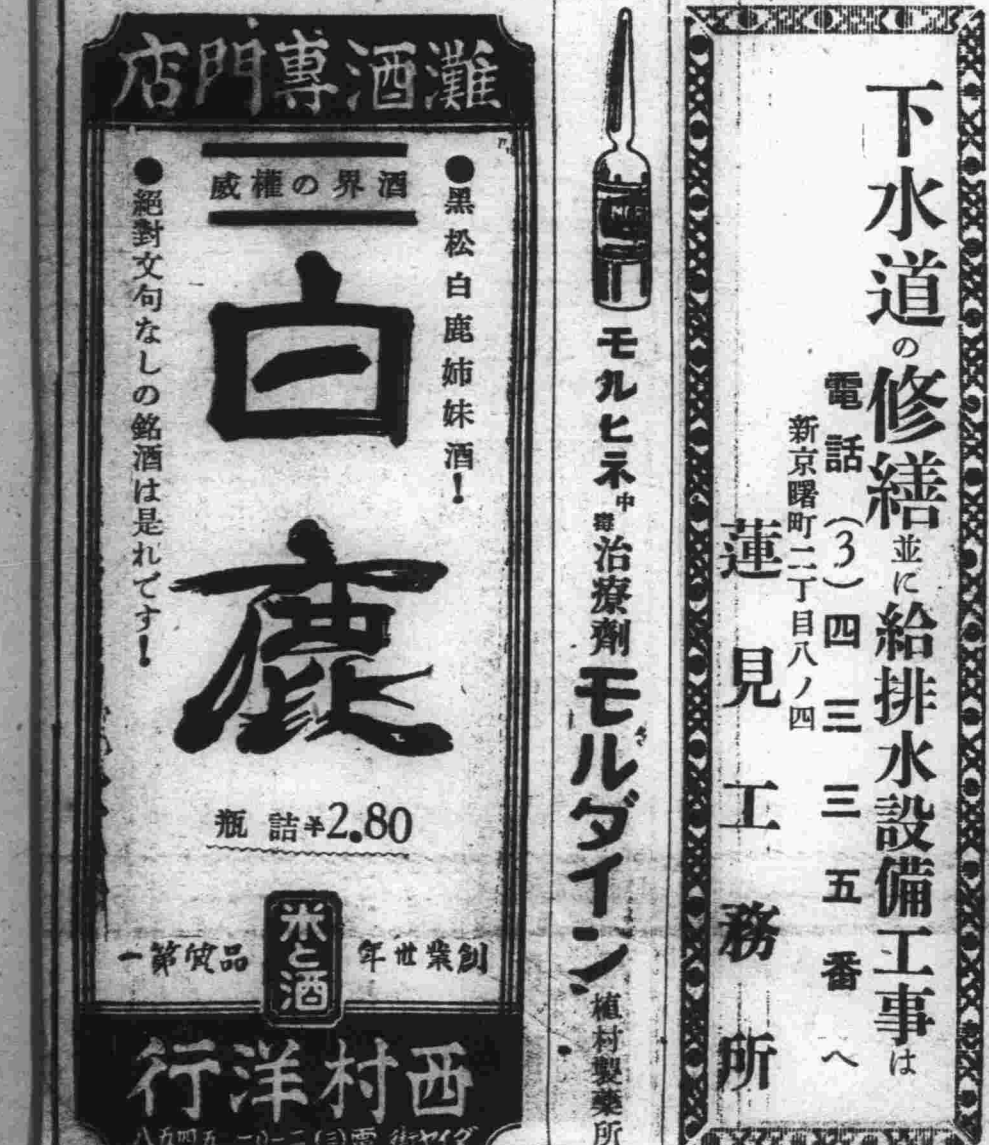 下水道の修繕並に給排水設備工事は
電話(3)四三三五番へ
新京曙町二丁目八ノ四
蓮見工務所
モルヒネ中毒治療劑モルダイン
植村製藥所
灘酒專門店
酒界の權威
●黑松白鹿姉妹酒!
白鹿
●絕對文句なしの銘酒は是れです!
瓶詰¥2.80
創業世年
米と酒
品質第一
西村洋行